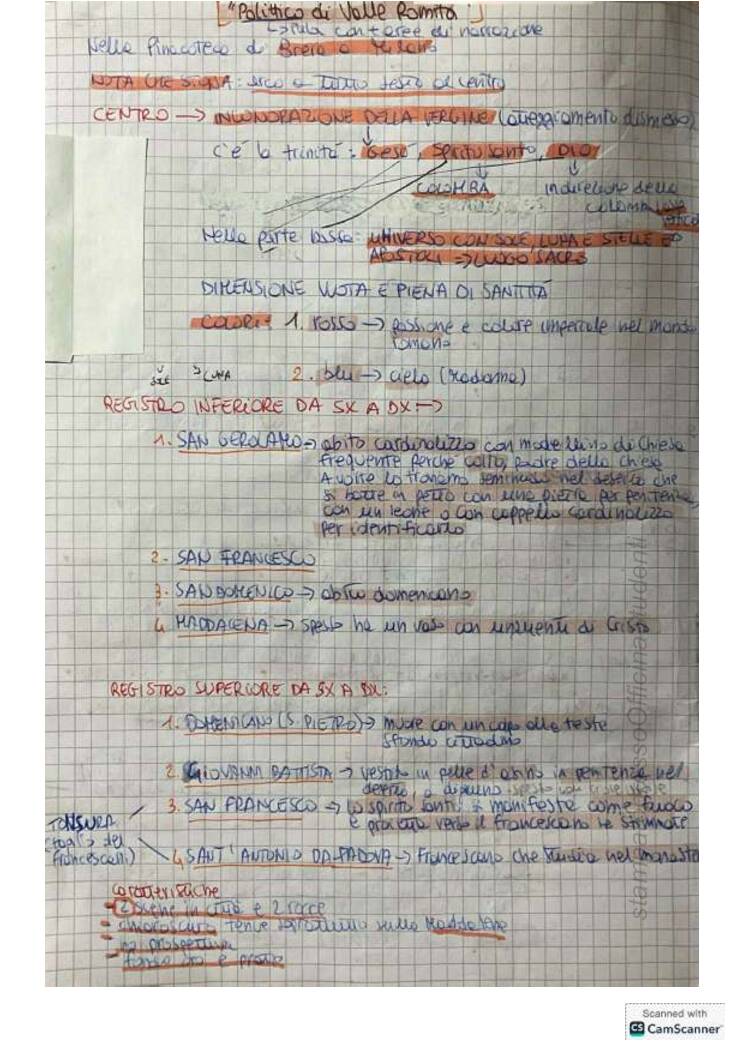 "Polittico di Valle Romita"
↳ pala con + aree di narrazione
Nella Pinacoteca di Brera a Milano
NOTA CHE SIGNA: arco a tutto sesto al centro
CENTRO → INCONORAZIONE DELLA VERGINE (atteggiamento dismesso)
C'è la trinità: Gesù, Spirito santo, DIO
COLOMBA in direzione della
colomba
Nella parte bassa: UNIVERSO CON SOLE, LUNA E STELLE ED
APOSTOLI → LUOGO SACRO
DIMENSIONE VUOTA E PIENA DI SANTITÀ
COLORI: 1. rosso → passione e colore imperiale nel mondo
romano
SOLE LUNA 2. blu → cielo (Madonna)
REGISTRO INFERIORE DA SX A DX →
1. SAN GEROLAMO → abito cardinalizio con modellino di Chiesa
frequente perché colto, padre della chiesa
A volte lo troviamo seminudo nel deserto che
si batte in petto con una pietra per penitenza,
con un leone o con cappello cardinalizio
per identificarlo
2. SAN FRANCESCO
3. SAN DOMENICO → abito domenicano
4. MADDALENA → spesso ha un vaso con unguenti di Cristo
REGISTRO SUPERIORE DA SX A DX:
1. DOMENICANO (S. PIETRO) → muore con un capo alla testa
sfondo cittadino
2. GIOVANNI BATTISTA → vestito in pelle d'asino in penitenza nel
deserto, a digiuno
3. SAN FRANCESCO → lo spirito santo si manifesta come fuoco
e procura verso il francescano le stimmate
TONSURA
(taglio dei
francescani)
4. SANT'ANTONIO DA PADOVA → Francescano che studia nel monaste
caratteristiche
- 2 scene in città e 2 rocce
- chiaroscuro tenue soprattutto sulla Maddalena
- no prospettiva
- fondo oro e prato
stampa presso Officina Studenti
Scanned with
CS CamScanner